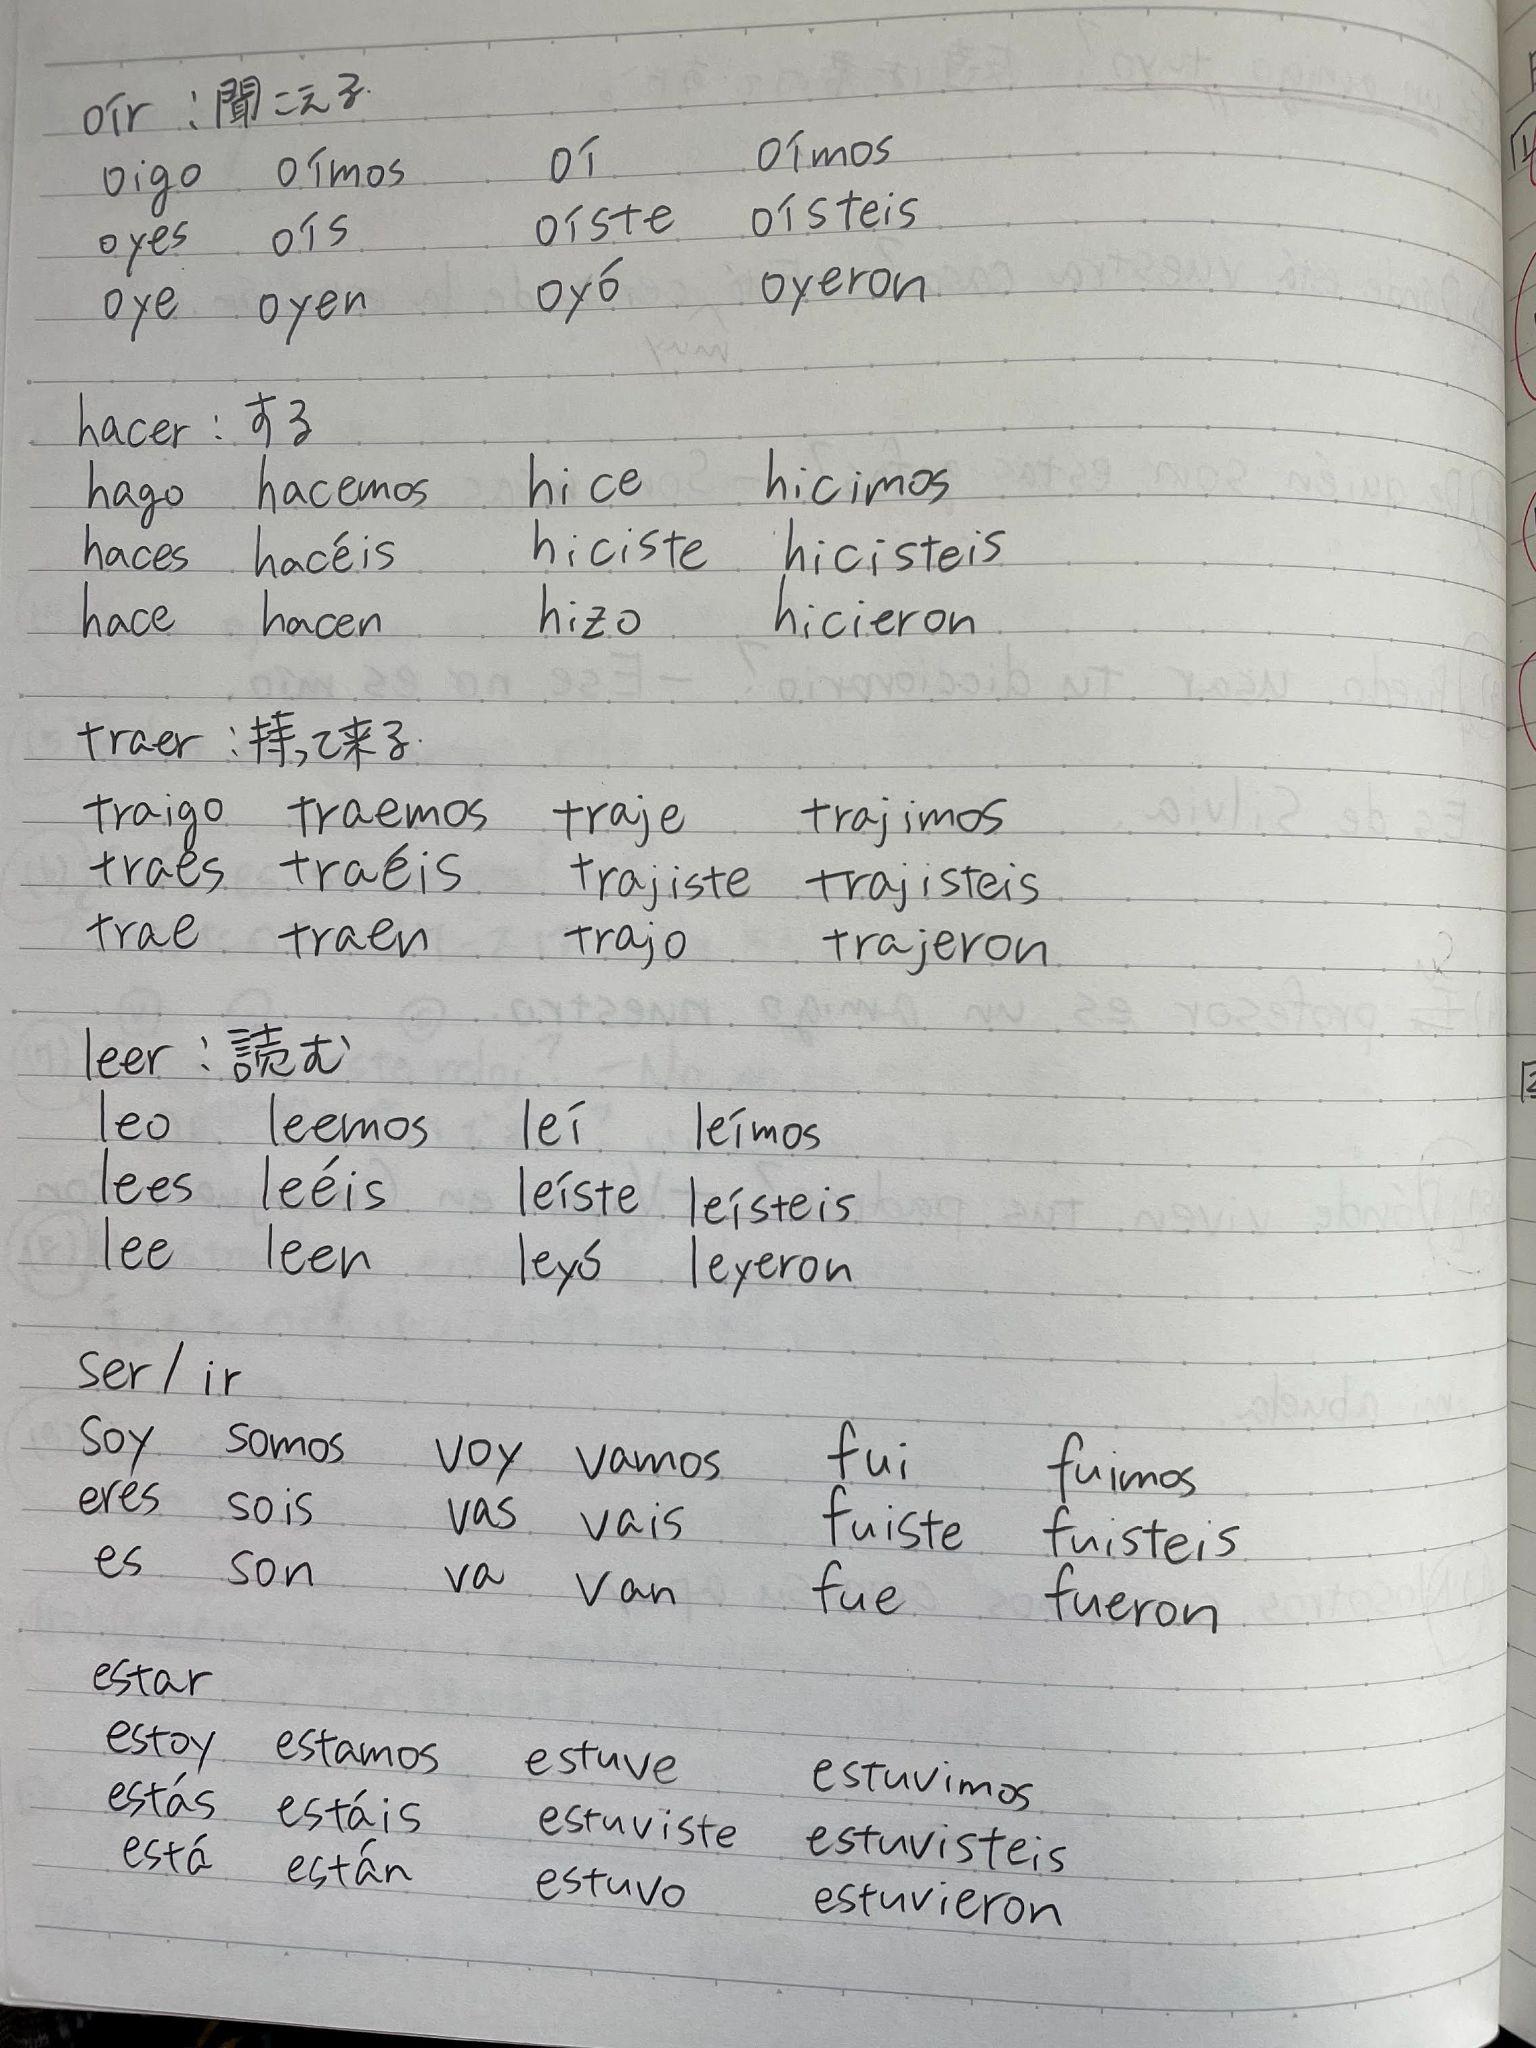 oír : 聞こえる
oigo oímos oí oímos
oyes oís oíste oísteis
oye oyen oyó oyeron
hacer : する
hago hacemos hice hicimos
haces hacéis hiciste hicisteis
hace hacen hizo hicieron
traer : 持って来る
traigo traemos traje trajimos
traes traéis trajiste trajisteis
trae traen trajo trajeron
leer : 読む
leo leemos leí leímos
lees leéis leíste leísteis
lee leen leyó leyeron
ser / ir
soy somos voy vamos fui fuimos
eres sois vas vais fuiste fuisteis
es son va van fue fueron
estar
estoy estamos estuve estuvimos
estás estáis estuviste estuvisteis
está están estuvo estuvieron